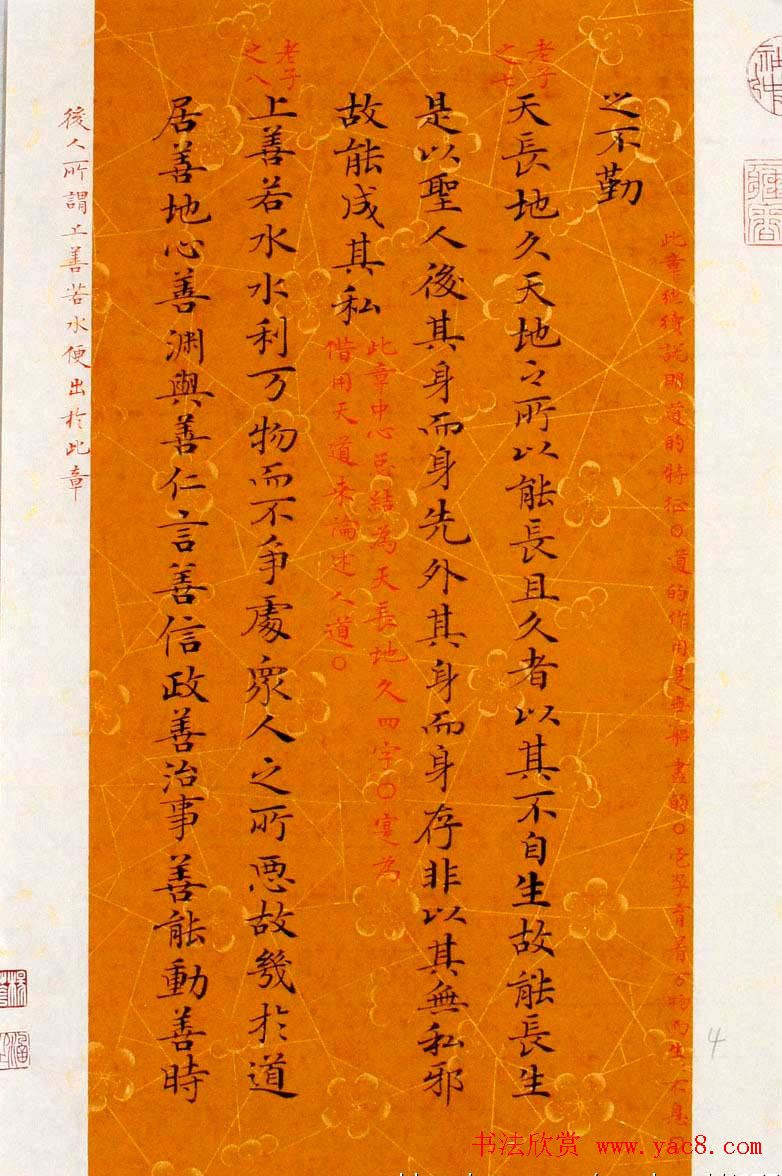 此章继续说明道的特征○道的作用是無窮盡的○它孕育着万物而生生不息○
之不勤
老子之七
天長地久天地之所以能長且久者以其不自生故能長生
是以聖人後其身而身先外其身而身存非以其無私邪
故能成其私
此章中心总結為天長地久四字○寔為
借用天道来論述人道○
老子之八
上善若水水利万物而不爭處衆人之所惡故幾於道
居善地心善渊與善仁言善信政善治事善能動善時
後人所謂上善若水便出於此章
4
书法欣赏 www.yac8.com